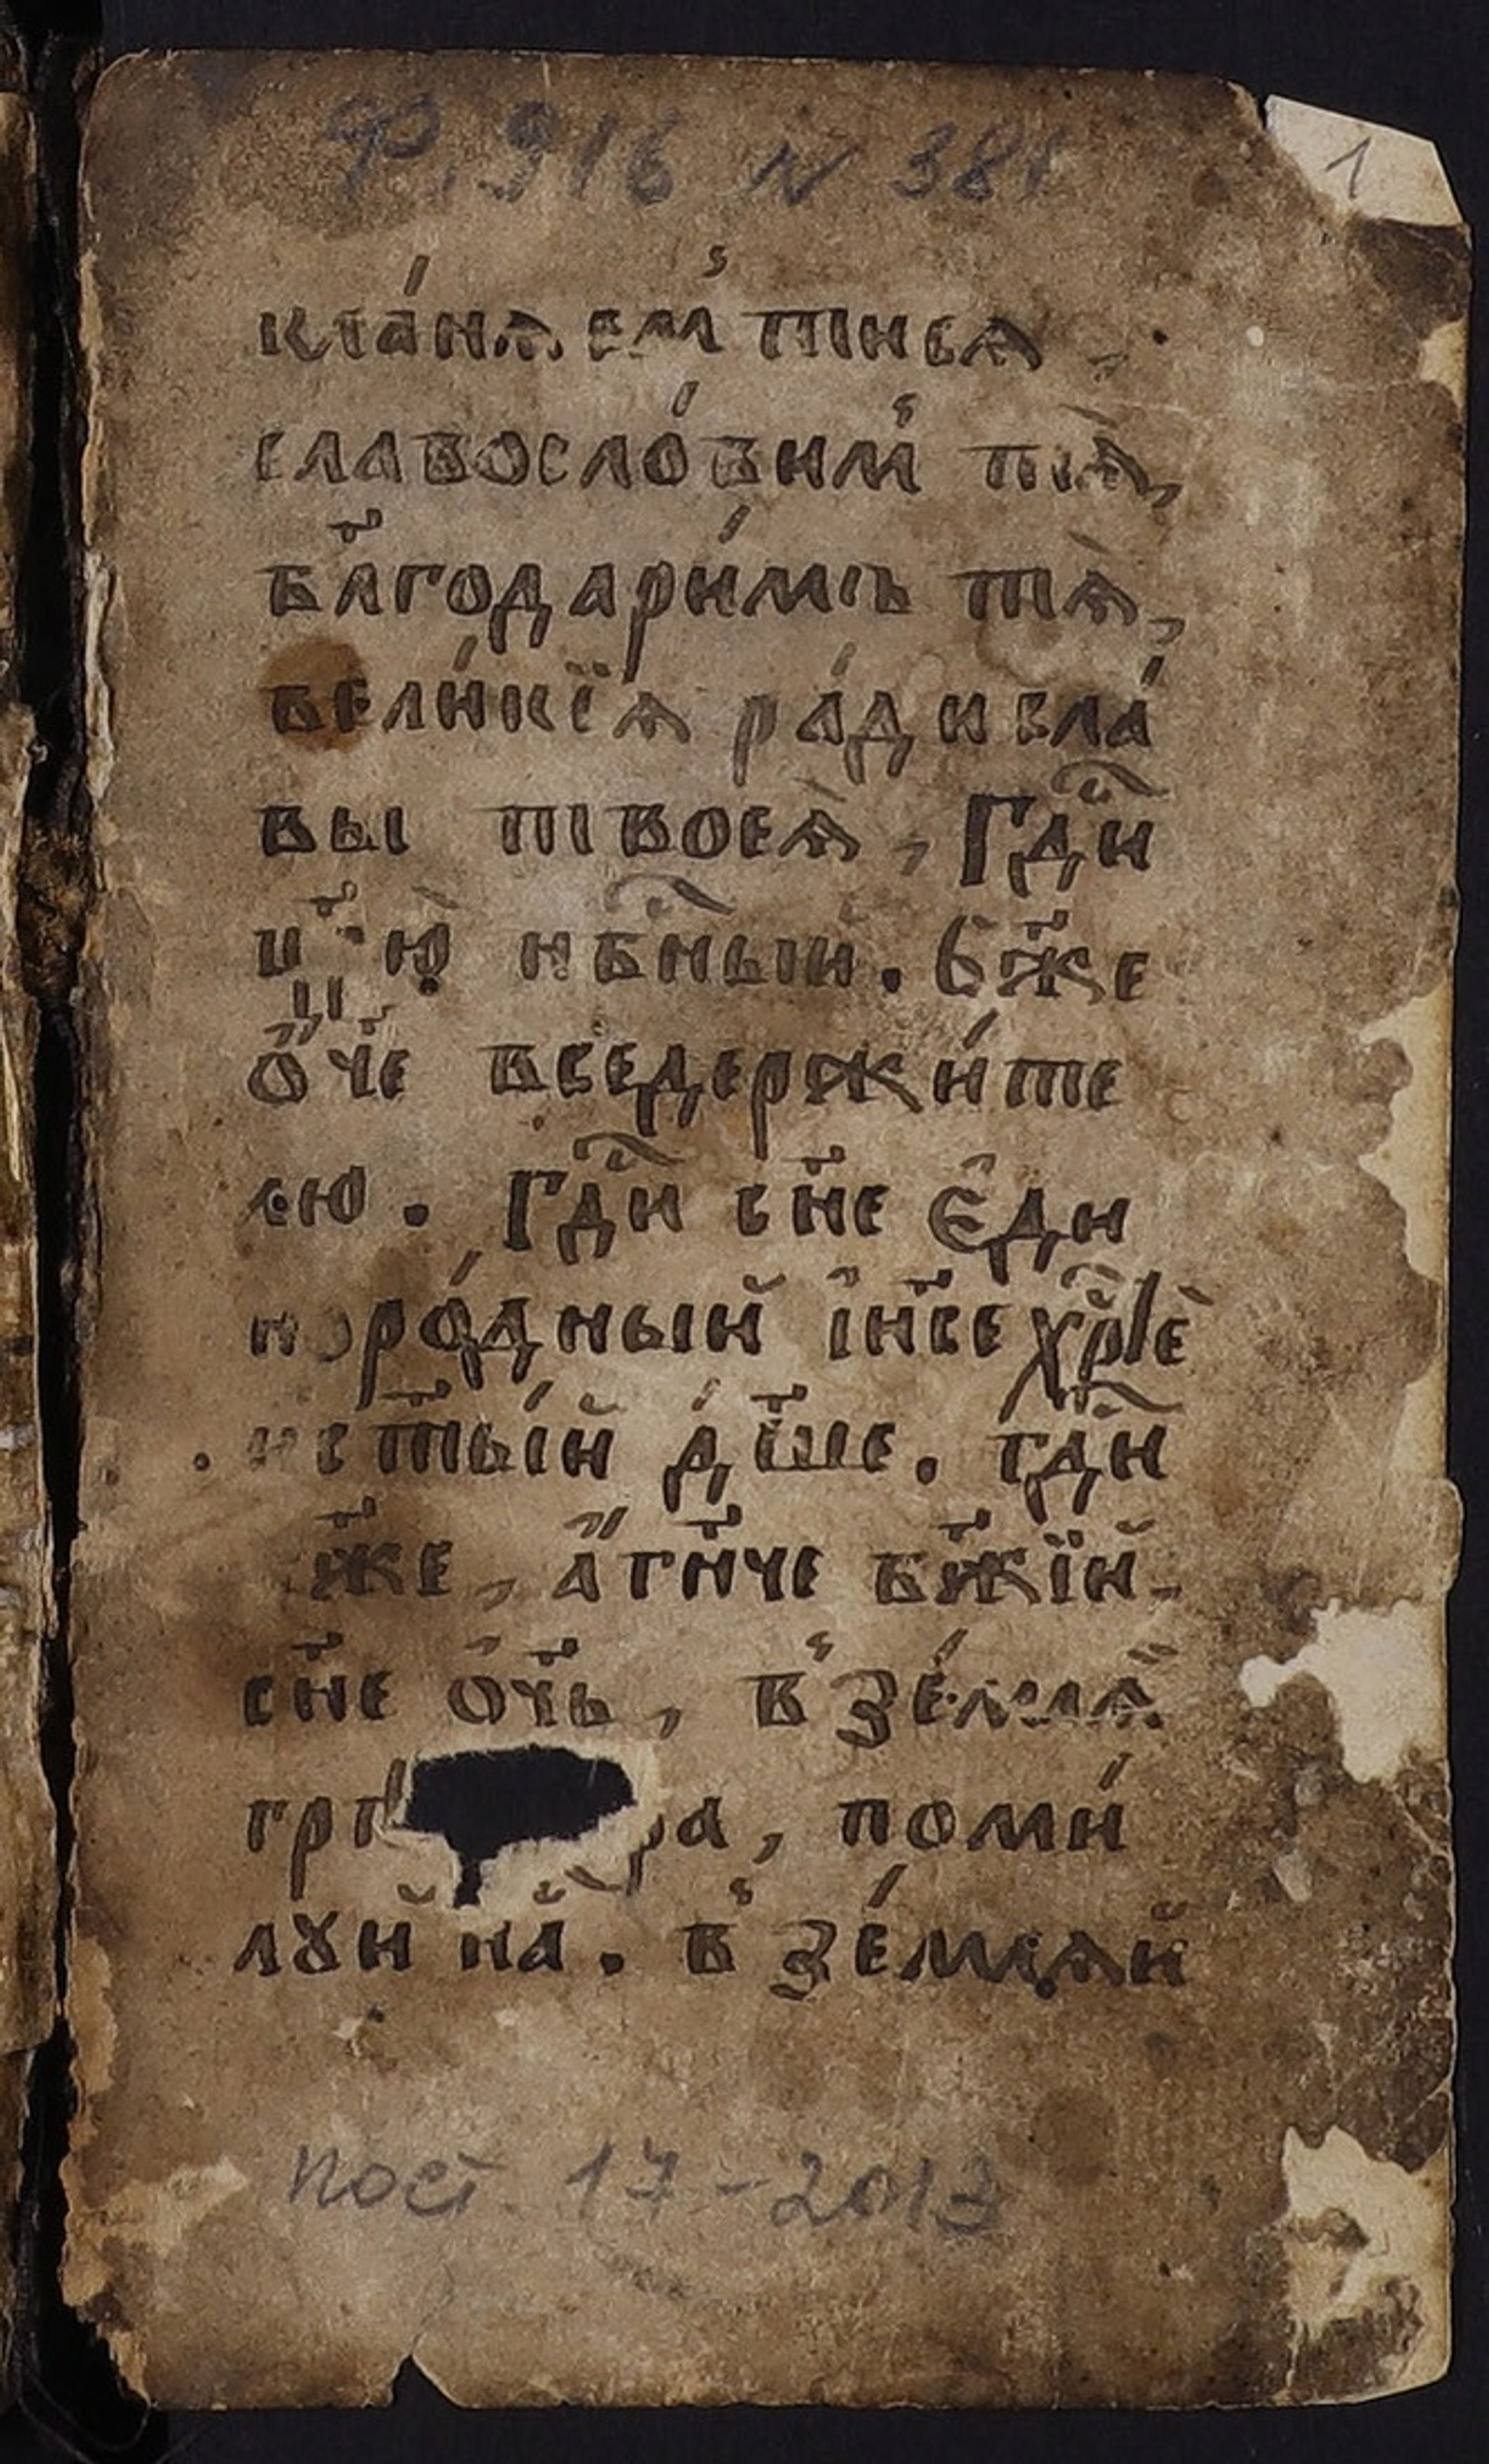 Ф. 916 N 381
1
кла́нѧем̾ тися
славосло́вим̾ тѧ̀,
бл҃годари́мъ тѧ̀,
вели́кїѧ ра́ди сла́
вы твоеѧ̀, Гдⷭ҇и
цр҃ю̀ нбⷭ҇ныи. Бж҃е
ѻ҆́ч҃е вседержи́те
лю. Гдⷭ҇и сн҃е є҆ди
норо́дныи҆ і҆исе хрⷭ҇тѐ
и ст҃ы́й дш҃е. гдⷭ҇и
бж҃е, а҆́гн҃че бж҃їи,
сн҃е ѻ҆ч҃ь, в̾зе́млѧ
поми́
луй на́. в̾зе́млѧй
Пост 17-2013